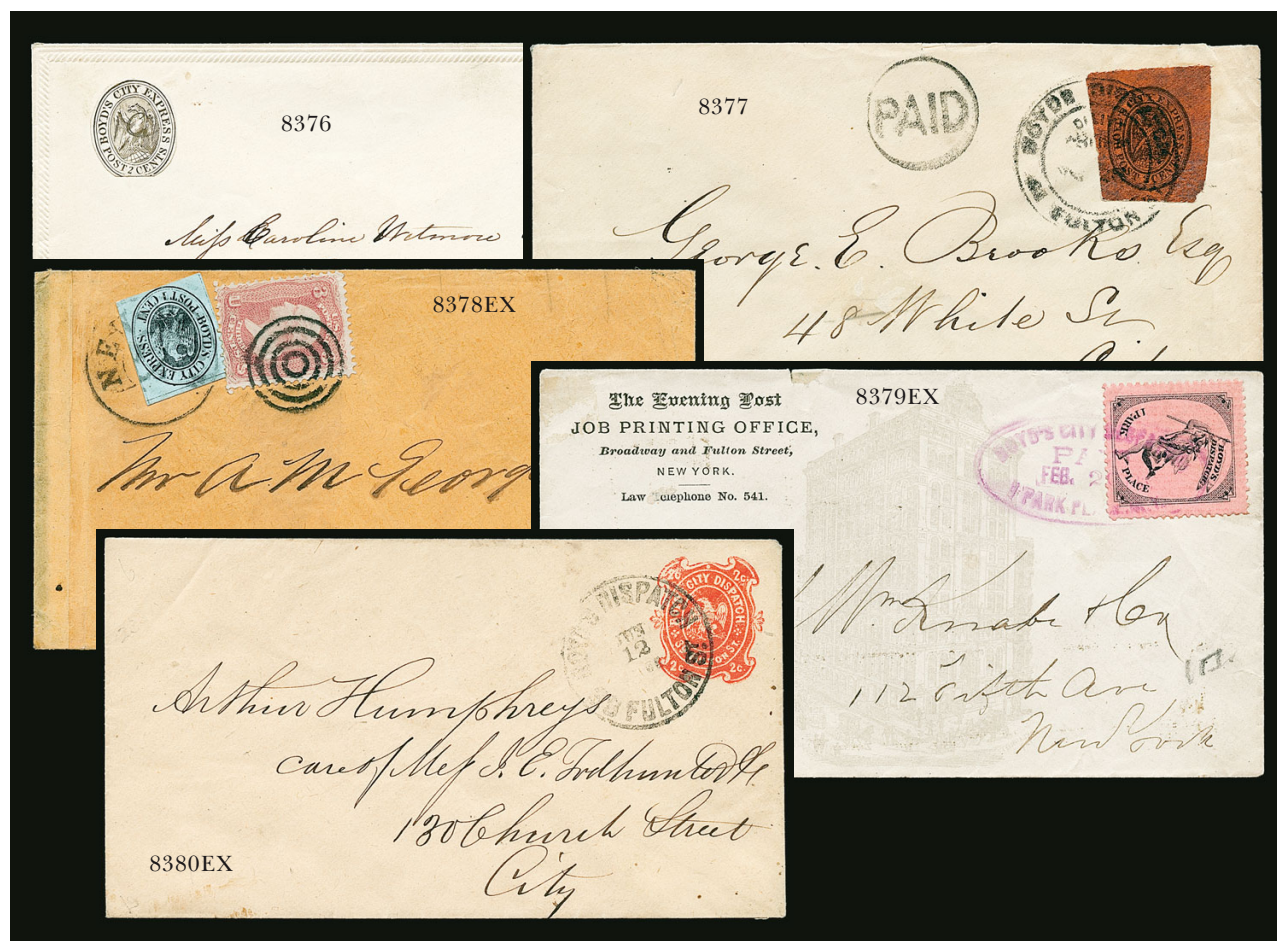 BOYD'S CITY EXPRESS
POST 2 CENTS
8376
Miss Caroline Wetmore
8377
PAID
BOYD'S CITY EXPRESS
POST 2 CENTS
FULTON
George. E. Brooks Esq
48 White St
8378EX
BOYD'S CITY EXPRESS. POST 1 CENT
NE
U
3
Mr A. M Georg
The Evening Post
JOB PRINTING OFFICE,
Broadway and Fulton Street,
NEW YORK.
Law Telephone No. 541.
8379EX
BOYD'S CITY
PA
FEB. 2
PARK PL
BOYD'S
DISPATCH
1 PARK
PLACE
Wm Knabe & Co
112 Fifth Ave
New York
2c. 2c.
CITY DISPATCH
ON ST.
2c. 2c.
DISPATCH
JUN
12
FULTON
Arthur Humphreys
care of Mess J. E. Todhunter &
130 Church Street
City
8380EX